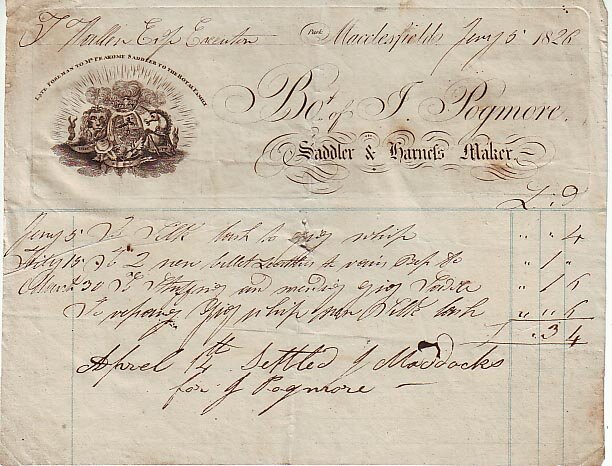 Executor Park Macclesfield Jany 5 1826
LATE FOREMAN TO Mr PEAKOME SADDLER TO THE ROYAL FAMILY
Bot. of J. Pogmore.
Saddler & Harness Maker.
£ s d
Jany 5 To Silk lash to gig whip " " 4
To 2 new billet leathers to " 1 "
March 30 To Stuffing and mending gig Saddle " 1 6
To repairing Gig whip new Silk lash " " 6
" 3 4
Aprel 14th Settled J Maddocks
for J Pogmore